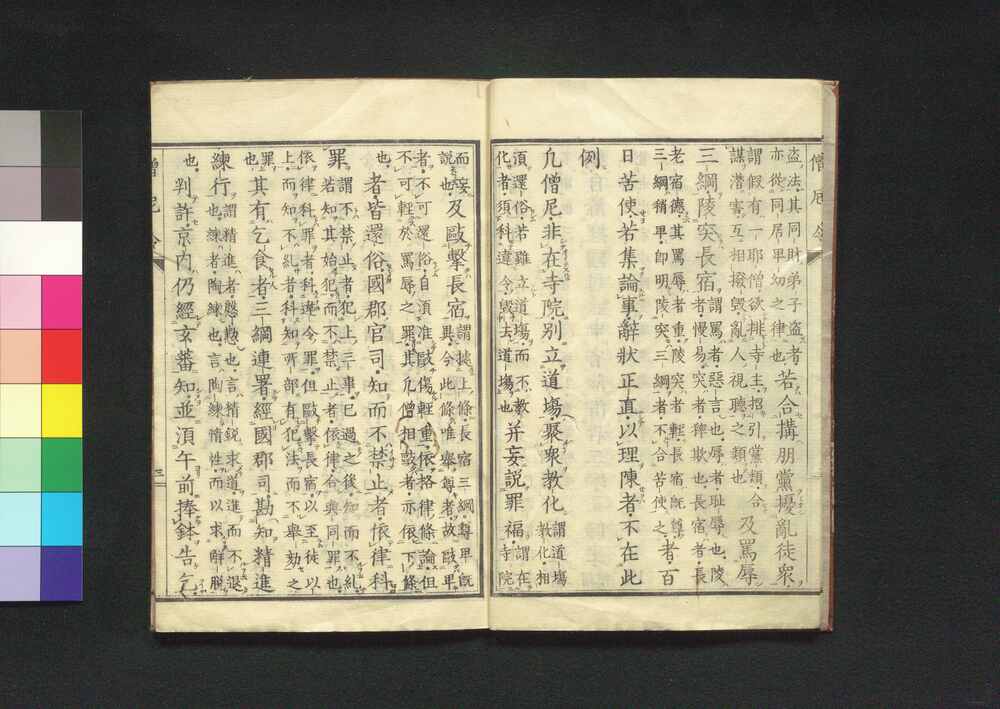 僧尼令
盗法其同財弟子盗者
亦從同居卑幼之律也
若合搆朋黨擾亂徒衆
謂假有一耶僧欲排寺主招引黨類合
謀潜害互相撥毀亂人視聽之類也
及罵辱
三綱陵突長宿
謂罵者惡言也辱者耻辱也陵
者慢易突者稗欺也長宿者長
老宿德其罵辱者重陵突者輕長宿旣尊
三綱稍卑卽明陵突三綱者不合苦使之
者百
日苦使若集論事辭狀正直以理陳者不在此
例
凡僧尼非在寺院別立道塲聚衆敎化
謂道塲
敎化相
湏還俗若雖立道塲而不敎
化者須科違令毀去道塲也
并妄說罪福
謂在
寺院
而妄
說也
及毆擊長宿
謂據上條長宿三綱尊卑旣
異今此條唯擧尊者故毆卑
者不可還俗自湏准毆傷輕重依格律條論但
不可輕於罵辱之罪其凡僧相毆者亦依下條
也
者皆還俗國郡官司知而不禁止者依律科
罪
謂不禁止者犯上三事已過之後知而不糺
若知其始犯而不禁止者依律合與同罪也
依律科罪者科違令罪但毆擊長宿以至徒以
上而知不糺者科知所部有犯法而不擧劾之
罪
也
其有乞食者三綱連署經國郡司勘知精進
練行
謂精進者懃懃也言精銳求道進而不退
也練者陶練也言陶練情性而以求解脱
也
判許京內仍經玄蕃知並湏午前捧鉢告乞
僧尼令
三